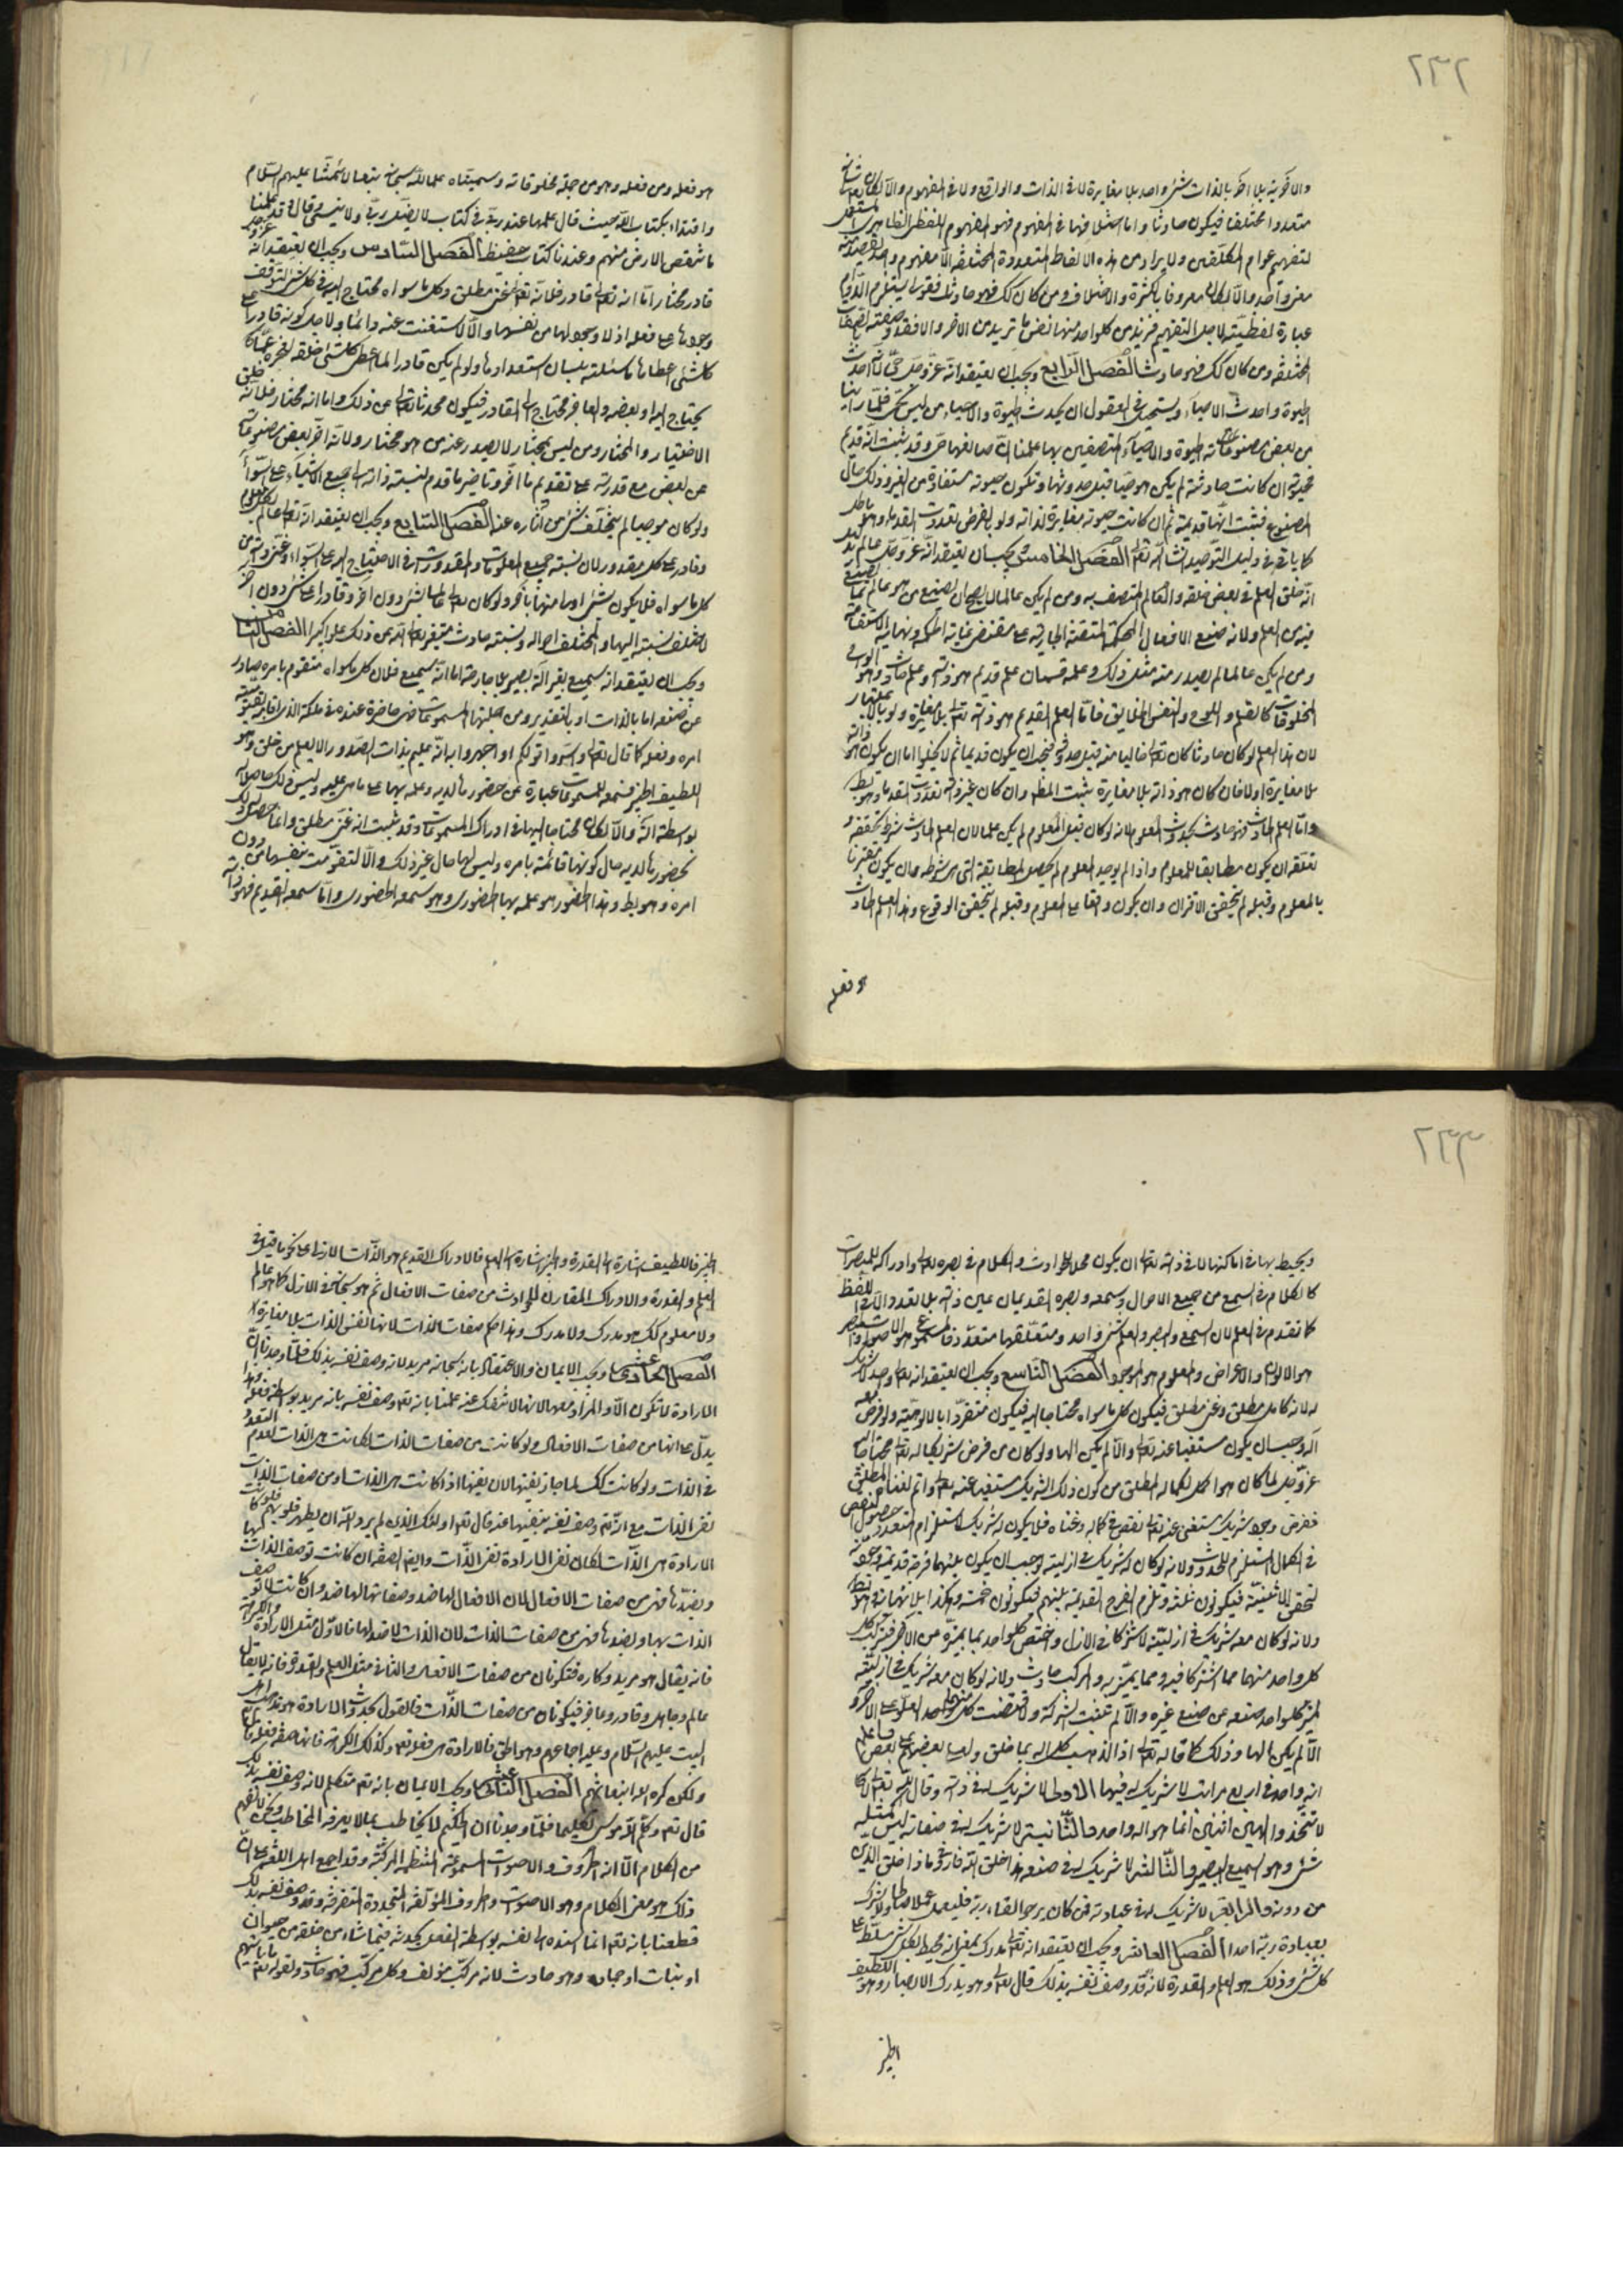 ٢٢٢
والاخرية بلا اخر بالذات شئ واحد بلا مغايرة لا فى الذات والواقع ولا فى المفهوم والا لكان تعالى شانه
متعددا مختلفا فيكون حادثا واما اختلافها فى المفهوم فهو المفهوم اللفظى الظاهرى المستعمل
لتفهيم عوام المكلفين ولا يراد من هذه الالفاظ المتعددة المختلفة الا مفهوم واحد يقصد منه
معنى واحد والا لكان معروفا بالكثرة والاختلاف ومن كان كك فهو حادث فقولنا يستلزم الدوام
عبارة لفظية لاجل التفهيم فنريد من كل واحد منها نفس ما نريد من الاخر والا فقد وصفته بالصفات
المختلفة ومن كان كك فهو حادث الفصل الرابع ويجب ان يعتقد انه عز وجل حى لانه احدث
الحيوة واحدث الاحياء ويستحيل فى العقول ان يحدث الحيوة والاحياء من ليس بحى فلما راينا
من بعض مصنوعاته الحيوة والاحياء المتصفين بها علمنا ان صانعها حى وقد ثبت انه قديم
فحيوته ان كانت حادثة لم يكن هو حيا قبل حدوثها وتكون حيوته مستفادة من الغير وذلك حال
المصنوع فثبت انها قديمة ثم ان كانت حيوته مغايرة لذاته ولو بالفرض تعددت القدماء وهو باطل
كما ياتى فى دليل التوحيد انشاء الله تعالى الفصل الخامس يجب ان يعتقد انه عز وجل عالم بدليل
انه خلق العلم فى بعض خلقه والعالم المتصف به ومن لم يكن عالما لا يصح ان يصنع من هو عالم بما يصنع
فيه من العلم ولانه صنع الافعال المحكمة المتقنة الجارية على مقتضى غاية الحكمة ونهاية الاستقامة
ومن لم يكن عالما لم يصدر منه مثل ذلك وعلمه قسمان علم قديم هو ذاته وعلم حادث وهو الواح
المخلوقات كالقلم واللوح وانفس الخلايق فاما العلم القديم هو ذاته تعالى بلا مغايرة ولو بالاعتبار
لان هذا العلم لو كان حادثا كان تعالى خاليا منه قبل حدوثه فيجب ان يكون قديما ثم لا يخلوا اما ان يكون هو ذاته
بلا مغايرة او لا فان كان هو ذاته بلا مغايرة ثبت المطلوب وان كان غير ذاته تعددت القدماء وهو باطل
واما العلم الحادث فهو حادث بحدوث المعلوم لانه لو كان قبل المعلوم لم يكن علما لان العلم الحادث شرط تحققه و
تعلقه ان يكون مطابقا للمعلوم واذا لم يوجد المعلوم لم يحصل المطابقة التى هى شرطه وان يكون مقترنا
بالمعلوم وقبله لم يتحقق الاقتران وان يكون واقعا على المعلوم وقبله لم يتحقق الوقوع وهذا العلم الحادث
هو فعله
هو فعله ومن فعله وهو من جملة مخلوقاته وسميناه علما لله سبحانه تبعا لائمتنا عليهم السلام
واقتداء بكتاب الله حيث قال علمها عند ربى فى كتاب لا يضل ربى ولا ينسى وقال قد علمنا
ما تنقص الارض منهم وعندنا كتاب حفيظ الفصل السادس ويجب ان يعتقد انه عز وجل
قادر مختار اما انه تعالى قادر فلانه تعالى غنى مطلق وكل ما سواه محتاج اليه فى كل شئ لتوقف
وجودها على فعله اذ لا وجود لها من نفسها والا لاستغنت عنه دائما ولاجل كونه قادرا على
كل شئ اعطاها ما سئلته بلسان استعدادها ولو لم يكن قادرا لما اعطى كل شئ خلقه لعجزه عما
يحتاج اليه او بعضه والعاجز محتاج الى القادر فيكون محدثا تعالى عن ذلك واما انه مختار فلانه خلق
الاختيار والمختار ومن ليس بمختار لا يصدر عنه من هو مختار ولانه اخر بعض مصنوعاته
عن بعض مع قدرته على تقديم ما اخر وتاخير ما قدم لنسبة ذاته الى جميع الاشياء على السواء
ولو كان موجبا لم يتخلف شئ من آثاره عنه الفصل السابع ويجب ان يعتقد انه تعالى عالم بكل معلوم
وقادر على كل مقدور لان نسبة جميع المعلومات والمقدورات فى الاحتياج اليه على السواء وغنى ذاته عن
كل ما سواه فلا يكون شئ اولى منها بآخر ولو كان تعالى عالما بشئ دون اخر وقادرا على شئ دون اخر
لاختلف نسبته اليها والمختلف احواله ونسبته حادث متغير تعالى الله عن ذلك علوا كبيرا الفصل الثامن
ويجب ان يعتقد انه سميع بغير آلة بصير بلا جارحة اما انه سميع فلان كل ما سواه متقوم بامره صادر
عن صنعه اما بالذات او بالتقدير ومن جملتها المسموعات فهى حاضرة عنده فى ملكه الذى اقامه بقيومية
امره وفعله كما قال تعالى واسروا قولكم او اجهروا به انه عليم بذات الصدور الا يعلم من خلق وهو
اللطيف الخبير فسمعه للمسموعات عبارة عن حضورها لديه وعلمه بها على ما هى عليه وليس ذلك حاصلا له
بواسطة آلة والا لكان محتاجا اليها فى ادراك المسموعات وقد ثبت انه غنى مطلق وانما حصل له ذلك
بحضورها لديه حال كونها قائمة بامره وليس لها حال غير ذلك والا لتقومت بنفسها من دون
امره وهو بط وهذا الحضور هو علمه بها الحضورى وهو سمعه الحضورى واما سمعه القديم فهو ذاته
٢٢٣
ويحيط بها فى اماكنها لا فى ذاته تعالى ان يكون محلا للحوادث والكلام فى بصره تعالى وادراكه للمبصرات
كالكلام فى السمع من جميع الاحوال وسمعه وبصره القديمان عين ذاته بلا تعدد الا فى اللفظ
كما تقدم فى العلم لان السمع والبصر والعلم شئ واحد ومتعلقها متعدد فالمسموع هو الاصوات والمبصر
هو الالوان والاعراض والمعلوم هو الموجود الفصل التاسع ويجب ان يعتقد انه تعالى واحد لا شريك
له لانه كامل مطلق وغنى مطلق فيكون كل ما سواه محتاجا اليه فيكون متفردا بالالوهية ولو فرض معه
اله وجب ان يكون مستغنيا عنه تعالى والا لم يكن الها ولو كان من فرض شريكا له تعالى محتاجا اليه
عز وجل لما كان هو اكمل لكماله المطلق من كون ذلك الشريك مستغنيا عنه تعالى واتم لغناه المطلق
ففرض وجود شريك مستغن عنه تعالى نقص فى كماله وغناه فلا يكون له شريك لاستلزام التعدد حصول النقص
فى الكمال المستلزم للحدوث ولانه لو كان له شريك فى ازليته لوجب ان يكون بينهما فرجة قديمة وجودية
لتحقق الاثنينية فيكونون ثلثة وتلزم الفرج القديمة بينهم فيكونون خمسة وهكذا بلا نهاية وهو بط
ولانه لو كان معه شريك فى ازليته لاشتركا فى الازل واختص كل واحد بما يميزه عن الاخر فتركب
كل واحد منهما مما اشتركا فيه ومما تميز به والمركب حادث ولانه لو كان معه شريك فى ازليته
لميز كل واحد صنعه عن صنع غيره والا لم تثبت الشركة ولاقتضت كل منهما العلو على الاخر و
الا لم يكن الها وذلك كما قال تعالى اذا لذهب كل اله بما خلق ولعلا بعضهم على بعض فاعلم
انه واحد فى اربع مراتب لا شريك له فيها الاولى لا شريك له فى ذاته وقال الله تعالى
لا تتخذوا الهين اثنين انما هو اله واحد والثانية لا شريك له فى صفاته ليس كمثله
شئ وهو السميع البصير والثالثة لا شريك له فى صنعه هذا خلق الله فارونى ماذا خلق الذين
من دونه والرابعة لا شريك له فى عبادته فمن كان يرجو لقاء ربه فليعمل عملا صالحا ولا يشرك
بعبادة ربه احدا الفصل العاشر ويجب ان يعتقد انه تعالى مدرك بمعنى انه محيط بكل شئ متسلط على
كل شئ وذلك هو العلم والقدرة لانه قد وصف نفسه بذلك قال تعالى وهو يدرك الابصار وهو اللطيف
الخبير
الخبير فاللطيف اشارة الى القدرة والخبير اشارة الى العلم فالادراك القديم هو الذات الازلى على نحو ما قيل فى
العلم والقدرة والادراك المقارن للحوادث من صفات الافعال ثم هو سبحانه فى الازل كما هو عالم
ولا معلوم كك هو مدرك ولا مدرك وهذا حكم صفات الذات لانها نفس الذات بلا مغايرة
الفصل الحاديعشر ويجب الايمان والاعتقاد بانه سبحانه مريد لانه وصف نفسه بذلك فلما وجدنا ان
الارادة لا تكون الا والمراد معها لانها لا تنفك عنه علمنا بانه تعالى وصف نفسه بانه مريد بواسطة فعله وهذا
يدل على انها من صفات الافعال ولو كانت من صفات الذات لكانت هى الذات لعدم التعدد
فى الذات ولو كانت كك لما جاز نفيها لان نفيها اذا كانت هى الذات او من صفات الذات
نفى الذات مع انه وصف نفسه بنفيها عنه قال تعالى اولئك الذين لم يرد الله ان يطهر قلوبهم فلو كانت
الارادة هى الذات لكان نفى الارادة نفى الذات وايضا الصفة ان كانت توصف الذات بها
وبضدها فهى من صفات الافعال لان الافعال لها ضد وصفاتها لها ضد وان كانت لا توصف
الذات بها وبضدها فهى من صفات الذات لان الذات لا ضد لها فالاول مثل الارادة والكراهة
فانه يقال هو مريد وكاره فتكونان من صفات الافعال والثانى مثل العلم والقدرة فانه لا يقال
عالم وجاهل وقادر وعاجز فيكونان من صفات الذات فالقول بحدوث الارادة هو مذهب اهل
البيت عليهم السلام وعليه اجماعهم وهو الحق فالارادة هى فعله تعالى وكذلك الكراهة فانها صفة فعله قال تعالى
ولكن كره الله انبعاثهم الفصل الثانيعشر ويجب الايمان بانه تعالى متكلم لانه وصف نفسه بذلك
قال تعالى وكلم الله موسى تكليما فلما وجدنا ان الحكيم لا يخاطب بما لا يعرفه المخاطب ونحن لا نفهم
من الكلام الا انه الحروف والاصوات المسموعة المنتظمة المركبة وقد اجمع اهل اللغة على ان
ذلك هو معنى الكلام وهو الاصوات والحروف المؤلفة المتجددة المتفرقة وقد وصف نفسه بذلك
قطعنا بانه تعالى انما اسنده الى نفسه بواسطة الفعل يحدثه فيما شاء من خلقه من حيوان
او نبات او جماد وهو حادث لانه مركب مؤلف وكل مركب فهو حادث ولقوله تعالى ما ياتيهم